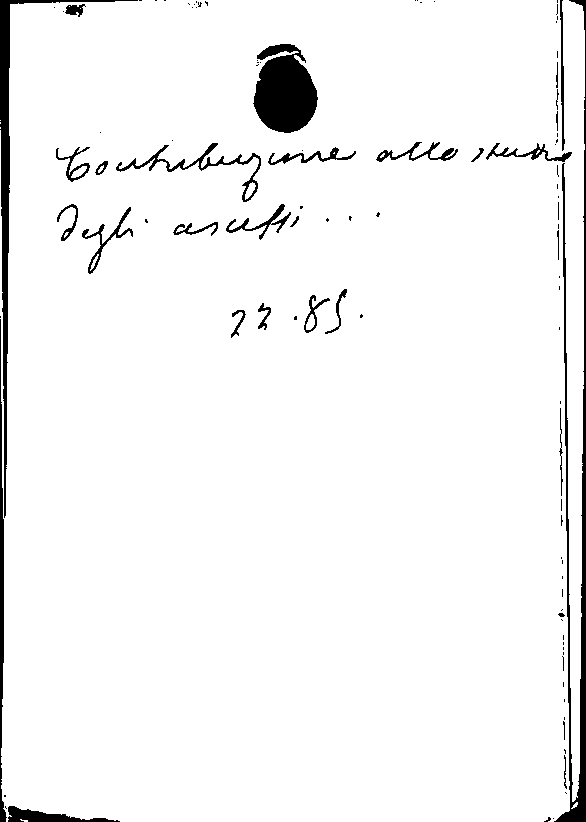 Contribuzione allo studio
degli ascessi ...
22.85.